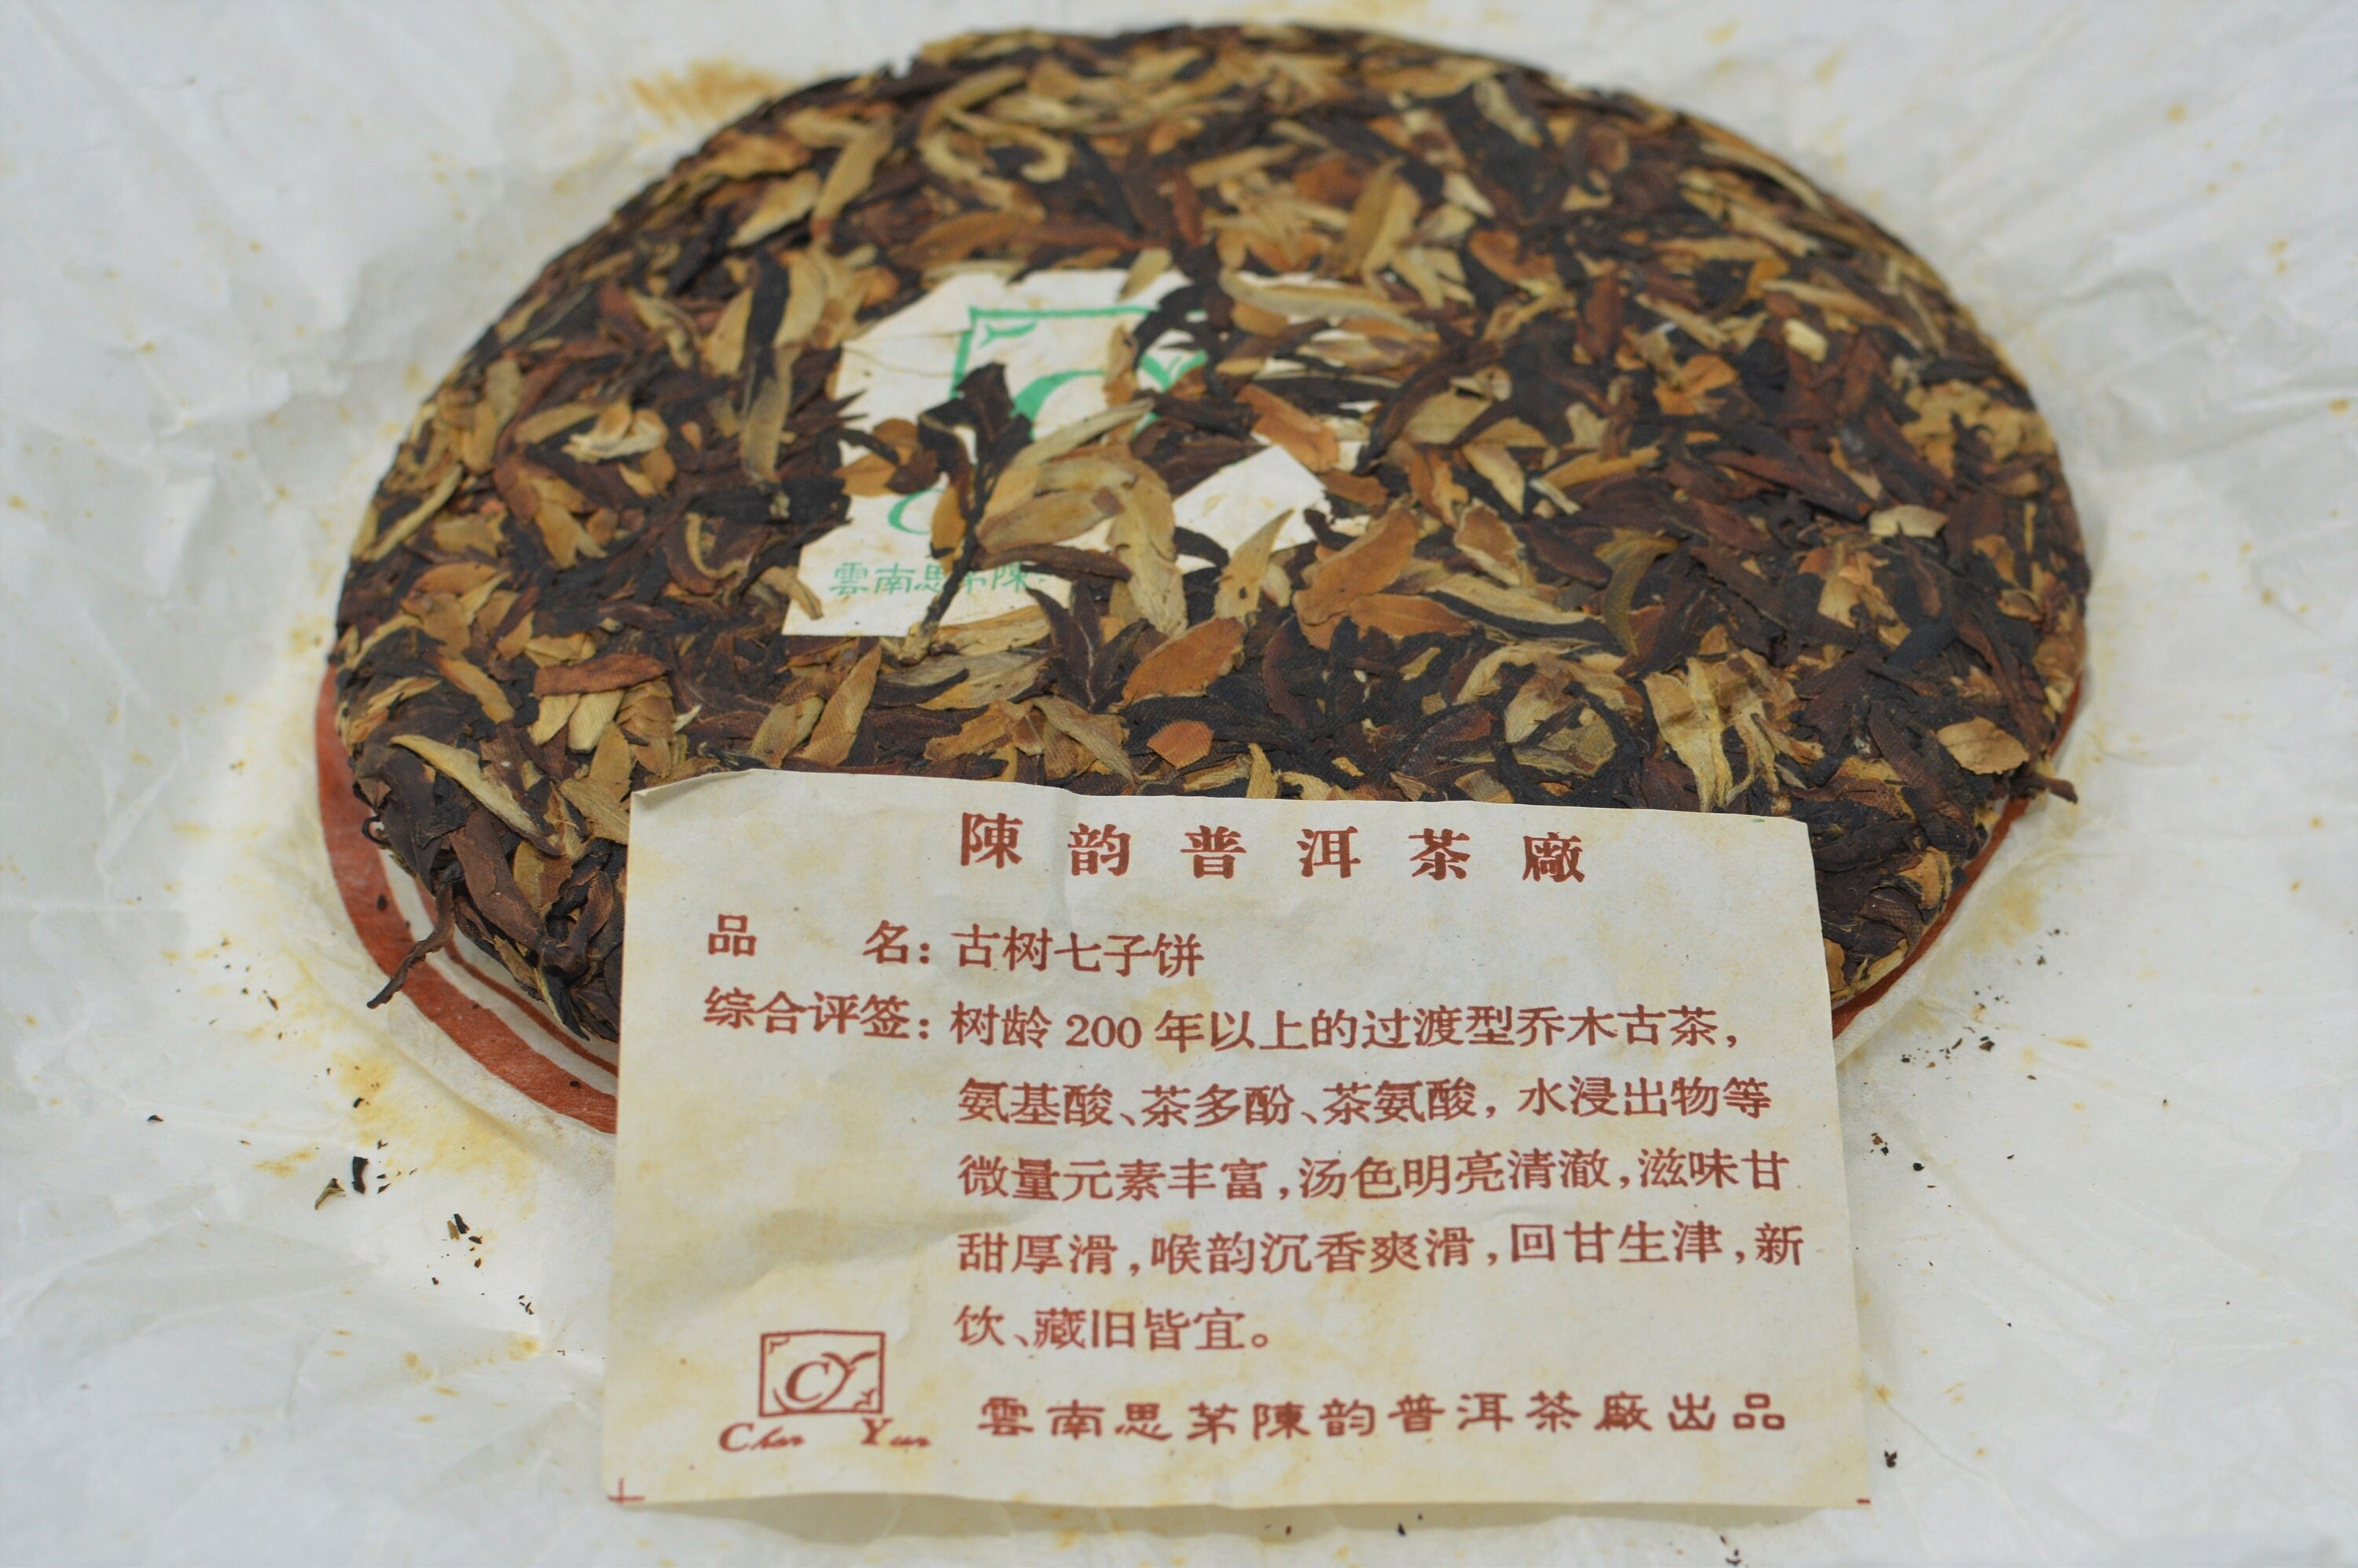 雲南思茅陳
陳韵普洱茶廠
品 名：古树七子饼
综合评签：树龄200年以上的过渡型乔木古茶，
氨基酸、茶多酚、茶氨酸，水浸出物等
微量元素丰富，汤色明亮清澈，滋味甘
甜厚滑，喉韵沉香爽滑，回甘生津，新
饮、藏旧皆宜。
CY
Chen Yun
雲南思茅陳韵普洱茶廠出品